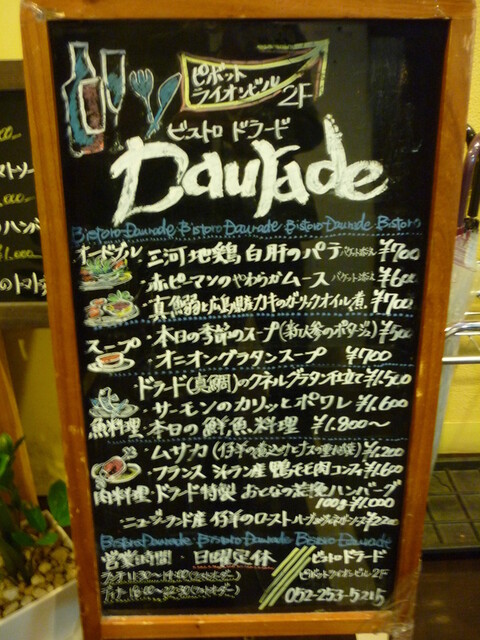 ピボット
ライオンビル
2F
ビストロ ドラード
Daurade
Bistoro Daurade Bistoro Daurade Bistoro Daurade Bistoro
オードブル
・三河地鶏 白肝のパテ バケット添え ¥700
・赤ピーマンのやわらかムース バケット添え ¥600
・真鰯と広島産カキのガーリックオイル煮 ¥700
スープ
・本日の季節のスープ(新人参のポタージュ) ¥500
・オニオングラタンスープ ¥700
・ドラード(真鯛)のクネルグラタン仕立て ¥1.500
・サーモンのカリッとポワレ ¥1.600
魚料理・本日の鮮魚料理 ¥1.800〜
・ムサカ(仔羊の煮込みとナスの重ね焼き) ¥1.200
・フランス シャラン産 鴨モモ肉コンフィ ¥1.600
肉料理・ドラード特製 おとなの煮込ハンバーグ
100g ¥1.000
・ニュージーランド産 仔羊のロースト ¥2200
Bistoro Daurade Bistoro Daurade Bistoro Daurade
営業時間・日曜定休
ビストロ ドラード
ピボットライオンビル2F
052-253-5215